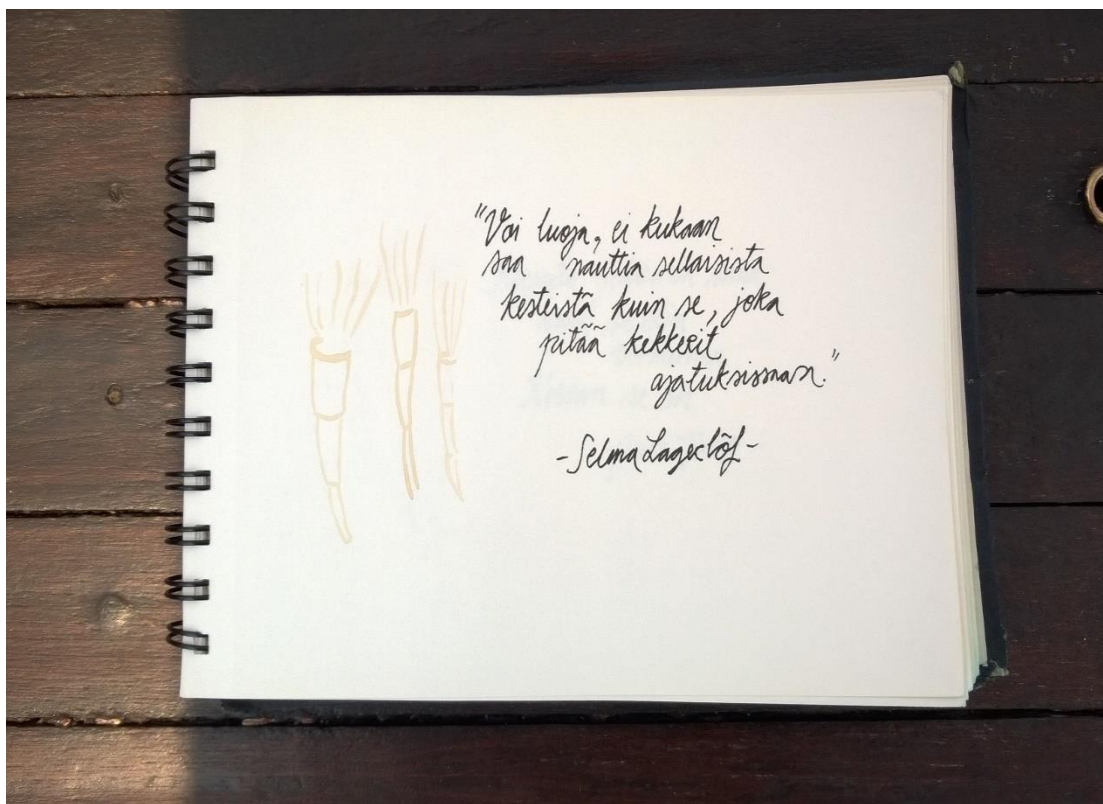 "Voi luoja, ei kukaan
saa nauttia sellaisista
kesteistä kuin se, joka
pitää kekkerit
ajatuksissaan."
-Selma Lagerlöf-